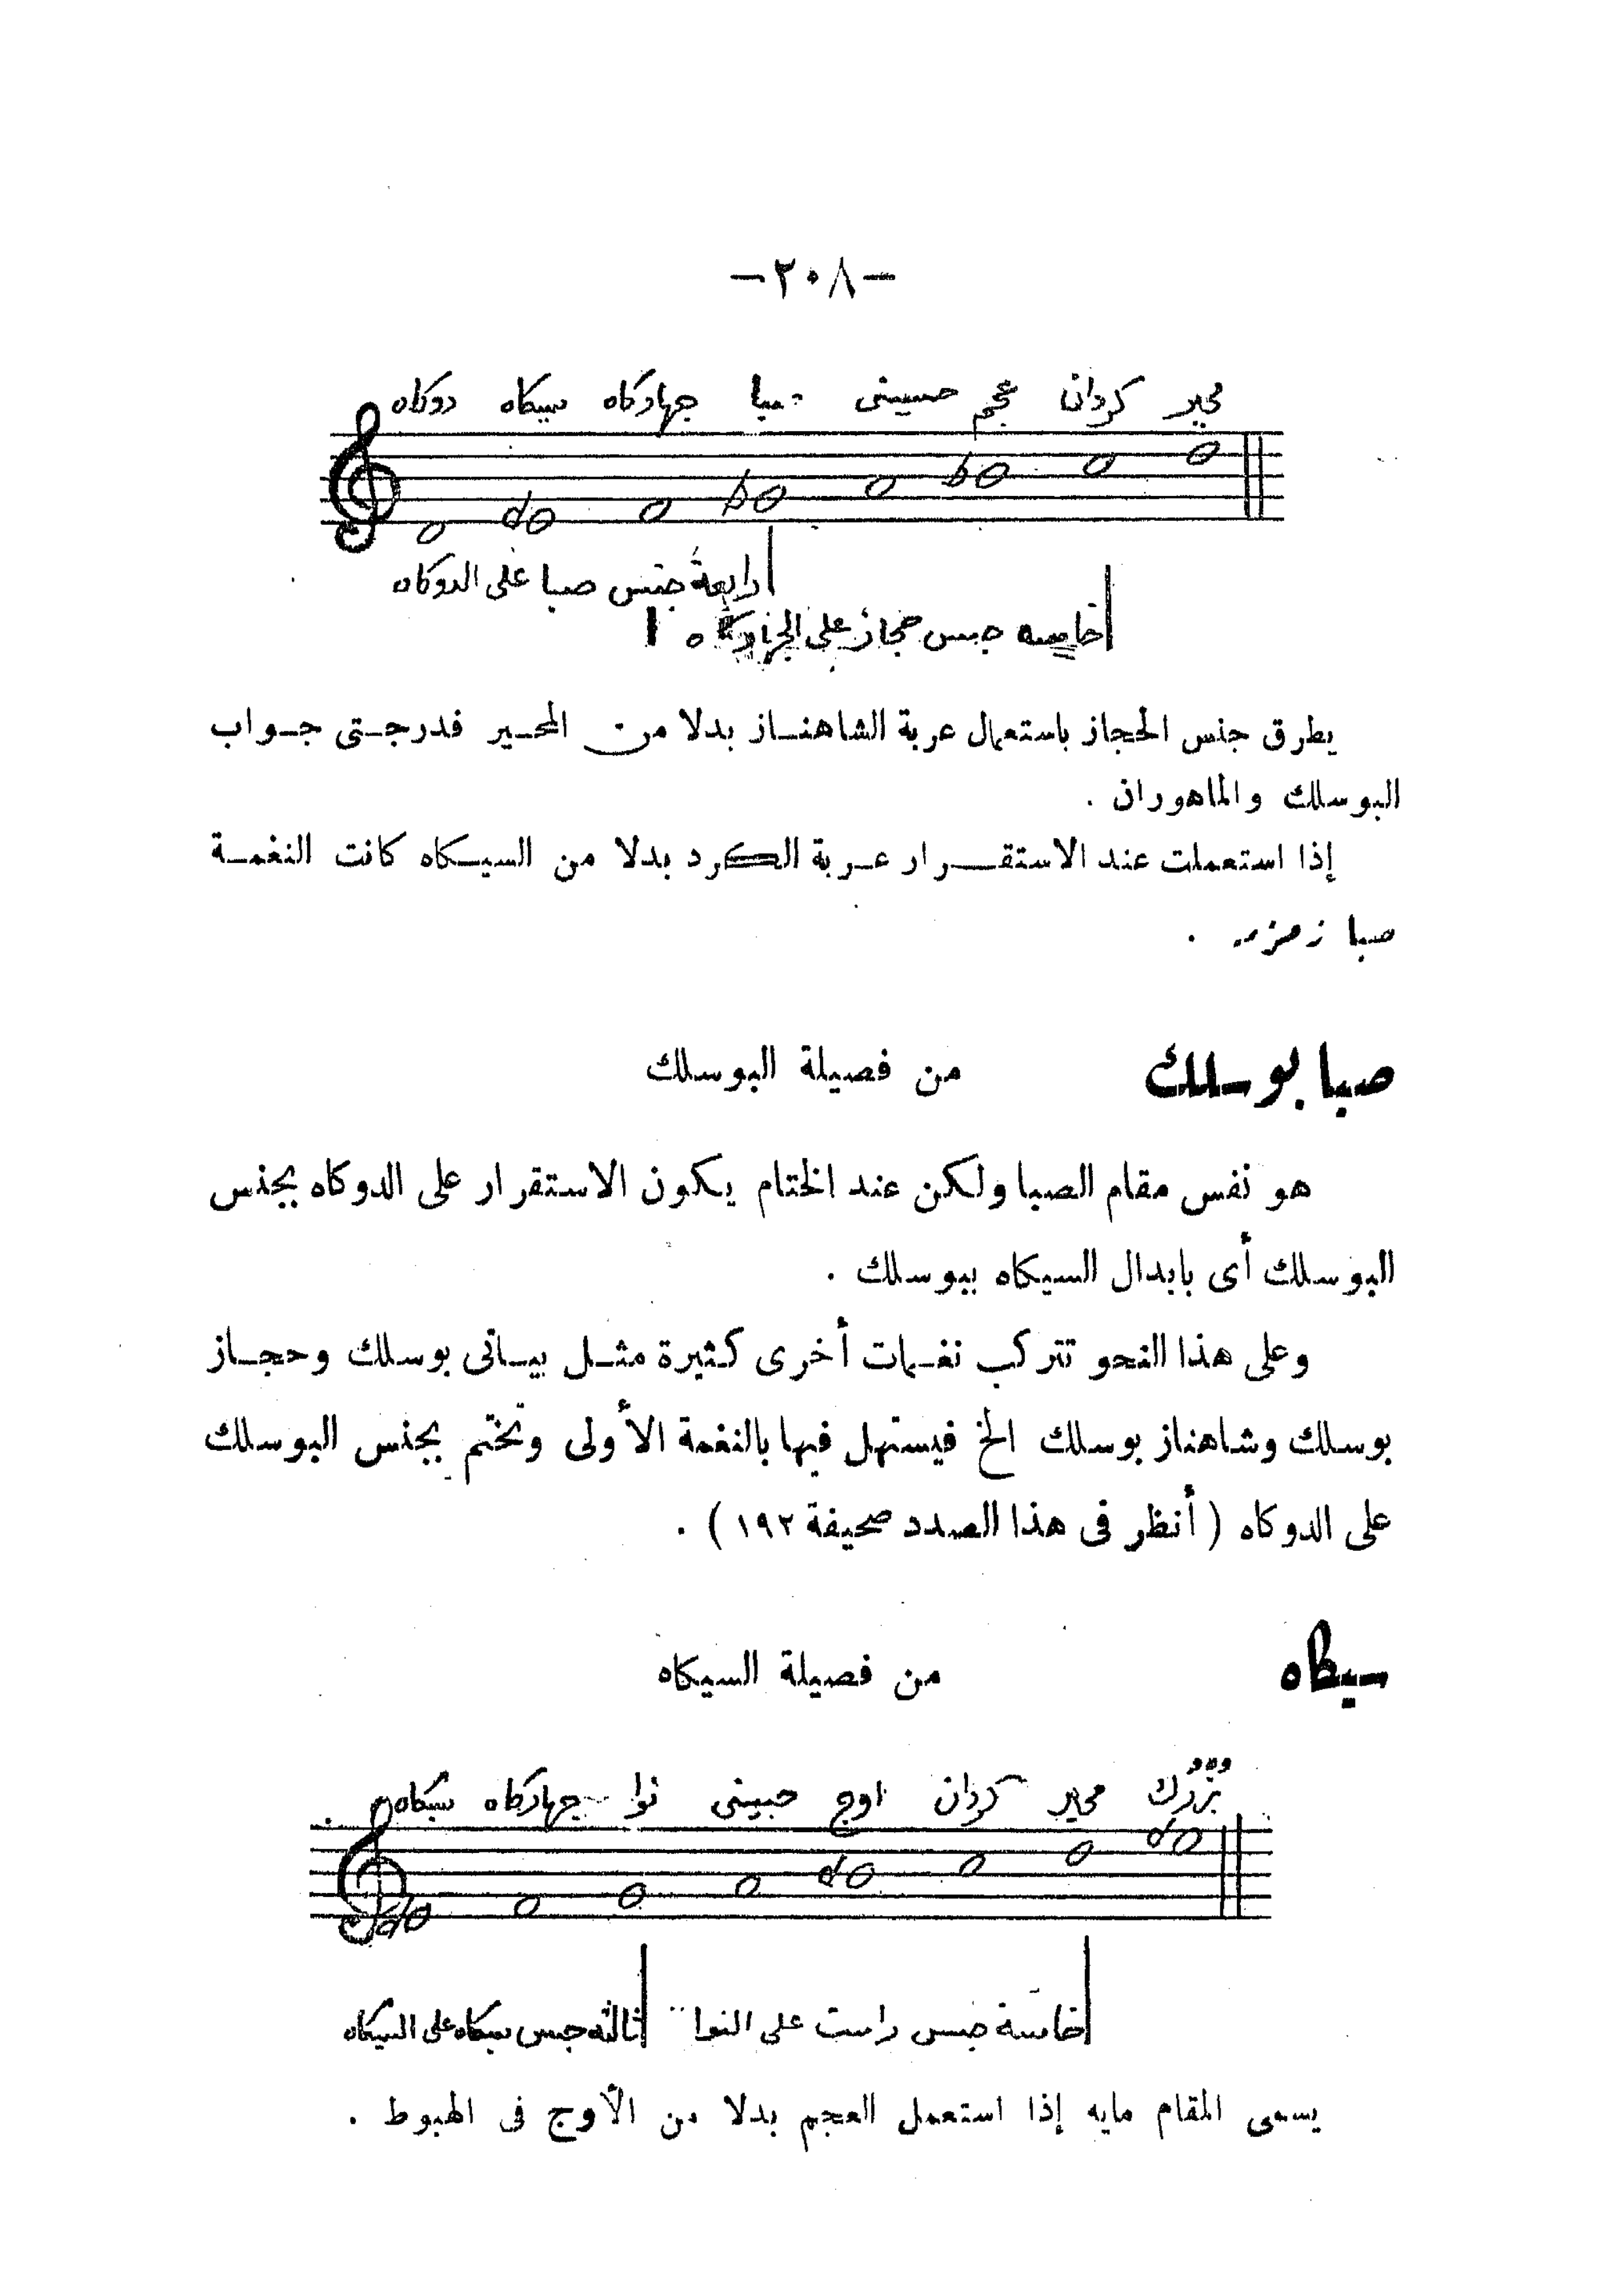 -٢٠٨-
دوكاه سيكاه جهاركاه صبا حسينى عجم كردان محير
رابعة جنس صبا على الدوكاه
خامسة جنس حجاز على الجهاركاه
يطرق جنس الحجاز باستعمال عربة الشاهناز بدلا من المحير فدرجتى جواب
البوسلك والماهوران .
إذا استعملت عند الاستقرار عربة الكرد بدلا من السيكاه كانت النغمة
صبا زمزمه .
صبا بوسلك من فصيلة البوسلك
هو نفس مقام الصبا ولكن عند الختام يكون الاستقرار على الدوكاه بجنس
البوسلك أى بابدال السيكاه ببوسلك .
وعلى هذا النحو تتركب نغمات أخرى كثيرة مثل بياتى بوسلك وحجاز
بوسلك وشاهناز بوسلك الخ فيستهل فيها بالنغمة الأولى وتختم بجنس البوسلك
على الدوكاه ( أنظر فى هذا الصدد صحيفة ١٩٢ ) .
سيكاه من فصيلة السيكاه
سيكاه جهاركاه نوا حسينى اوج كردان محير بُزُرك
ثالثه جنس سيكاه على السيكاه خامسة جنس راست على النوا
يسمى المقام مايه إذا استعمل العجم بدلا من الأوج فى الهبوط .